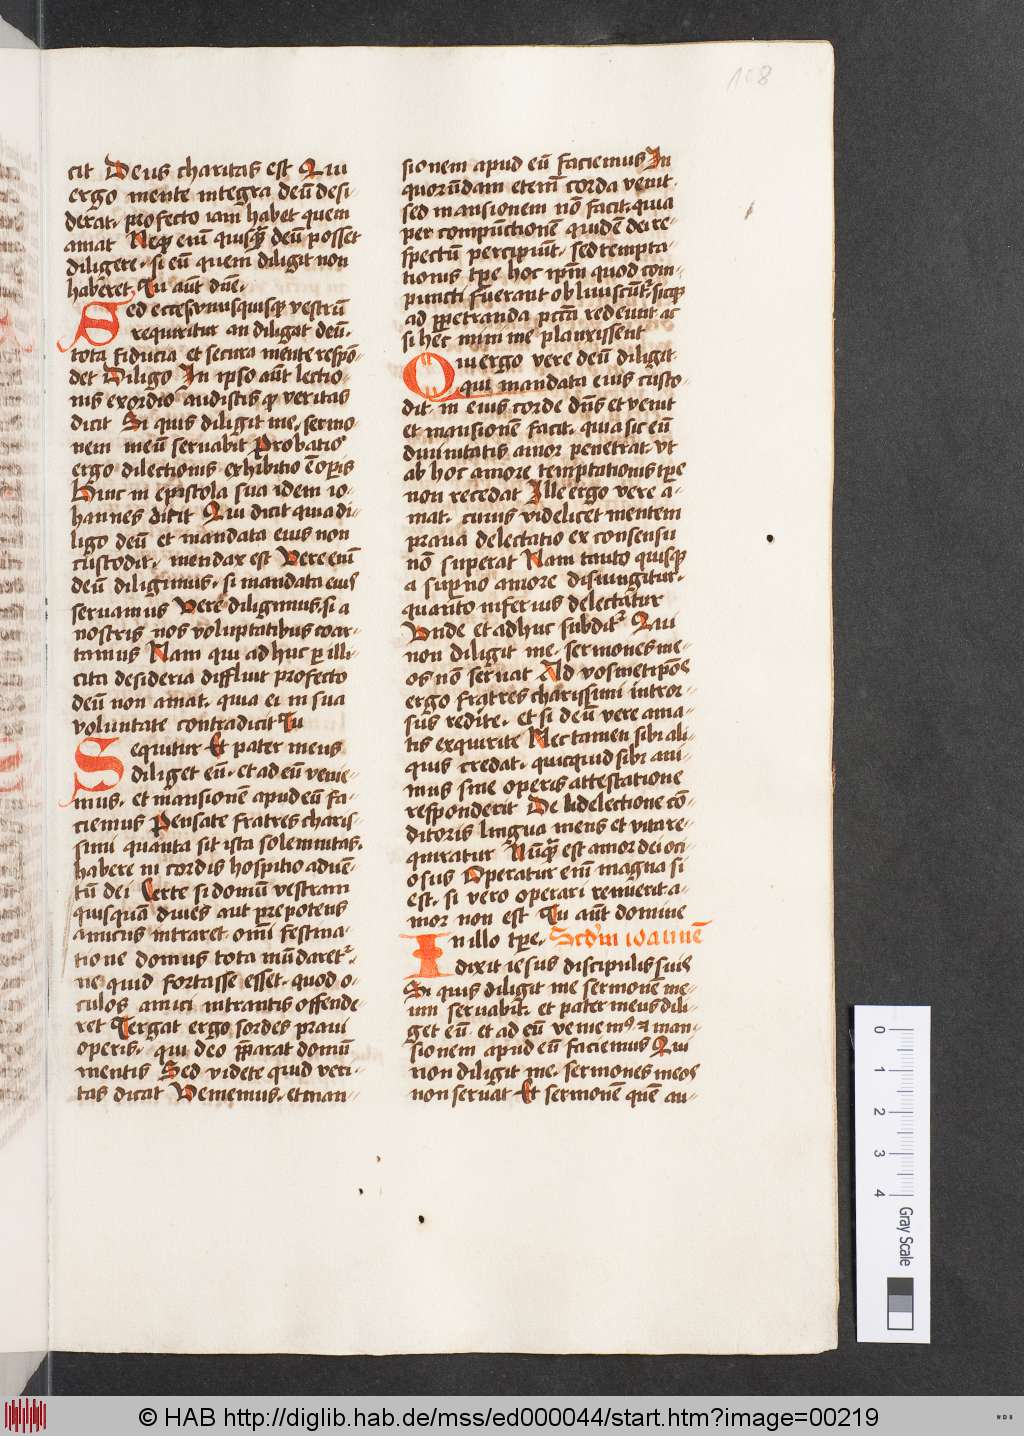 108
cit Deus charitas est Qui
ergo mente integra deū desi-
derat. profecto iam habet quem
amat Neqʒ enī quisqʒ deū posset
diligere. si eū quem diligit non
haberet. Tu aut dn̄e.
Sed ecce si vnusquisqʒ vestrū
requiritur an diligat deū.
tota fiducia et secura mente respō-
det Diligo In ipso aūt lectio-
nis exordio audistis qꝫ veritas
dicit Si quis diligit me. sermo-
nem meū seruabit Probatio
ergo dilectionis exhibitio ē oꝑis
Hinc in epistola sua idem io-
hannes dicit Qui dicit quia di-
ligo deū et mandata eius non
custodit. mendax est Vere enī
deū diligimus. si mandata eius
seruamus Vere diligimus. si a
nostris nos voluptatibus coar-
tamus Nam qui adhuc ꝑ illi-
cita desideria diffluit profecto
deū non amat. quia ei in sua
voluntate contradicit Tu
Sequitur Et pater meus
diliget eū. et ad eū venie-
mus. et mansionē apud eū fa-
ciemus Pensate fratres charis-
simi quanta sit ista solemnitas.
habere in cordis hospitio aduē-
tū dei Certe si domū vestram
quisquā diues aut prepotens
amicus intraret. omī festina-
tione domus tota mūdaret᷑.
ne quid fortasse esset. quod o-
culos amici intrantis offende-
ret Tergat ergo sordes praui
operis. qui deo p̄parat domū
mentis Sed videte quid veri-
tas dicat Veniemus. et man-
sionem apud eū faciemus In
quorūdam etenī corda venit.
sed mansionem nō facit. quia
per compūctionē quidē dei re-
spectū percipiūt. sed tempta-
tionis tꝑe hoc ip̄m quod com-
puncti fuerant obliuiscūt᷑. sicqʒ
ad ꝑpetranda pccā redeunt ac
si hec minime planxissent
Qui ergo vere deū diligit
qui mandata eius custo-
dit. in eius corde dn̄s et venit
et mansionē facit. quia sic eū
diuinitatis amor penetrat. vt
ab hoc amore temptationis tꝑe
non recedat Ille ergo vere a-
mat. cuius videlicet mentem
praua delectatio ex consensu
nō superat Nam tanto quisqʒ
a suꝑno amore disiungitur.
quanto inferius delectatur
Vnde et adhuc subdit᷑ Qui
non diligit me. sermones me-
os nō seruat Ad vosmetip̄os
ergo fratres charissimi intror-
sus redite. et si deū vere ama-
tis exquirite Nec tamen sibi ali-
quis credat. quicquid sibi ani-
mus sine operis attestatione
responderit De delectione cō-
ditoris lingua mens et vita re-
quiratur Nūqʒ est amor dei oci-
osus Operatur enī magna si
est. si vero operari renuerit a-
mor non est Tu aūt domine
In illo tꝑe. Scdm ioannē
dixit iesus discipulis suis
Si quis diligit me sermonē me-
um seruabit. et pater meus dili-
get eū. et ad eū veniemꝰ et man-
sionem apud eū faciemus Qui
non diligit me. sermones meos
non seruat Et sermonē quē au-
0 1 2 3 4
Gray Scale
© HAB http://diglib.hab.de/mss/ed000044/start.htm?image=00219